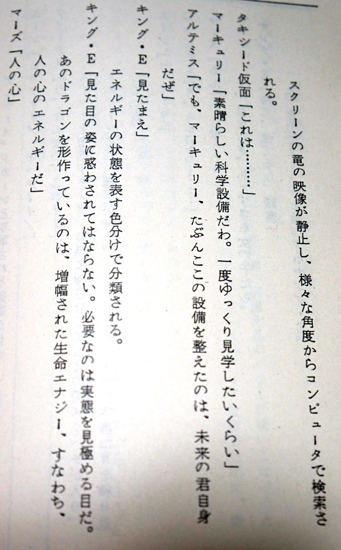 スクリーンの竜の映像が静止し、様々な角度からコンピュータで検索さ
れる。
タキシード仮面「これは…………」
マーキュリー「素晴らしい科学設備だわ。一度ゆっくり見学したいくらい」
アルテミス「でも、マーキュリー、たぶんここの設備を整えたのは、未来の君自身
だぜ」
キング・E「見たまえ」
エネルギーの状態を表す色分けで分類される。
キング・E「見た目の姿に惑わされてはならない。必要なのは実態を見極める目だ。
あのドラゴンを形作っているのは、増幅された生命エナジー、すなわち、
人の心のエネルギーだ」
マーズ「人の心」